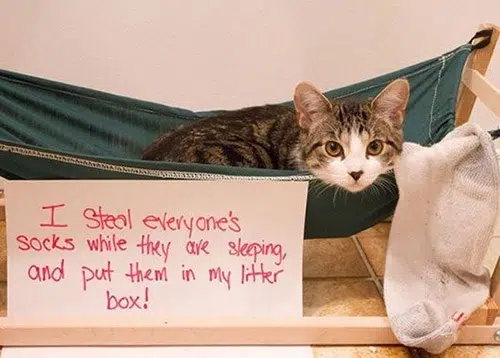 I Steal everyone's
socks while they are sleeping,
and put them in my litter
box!